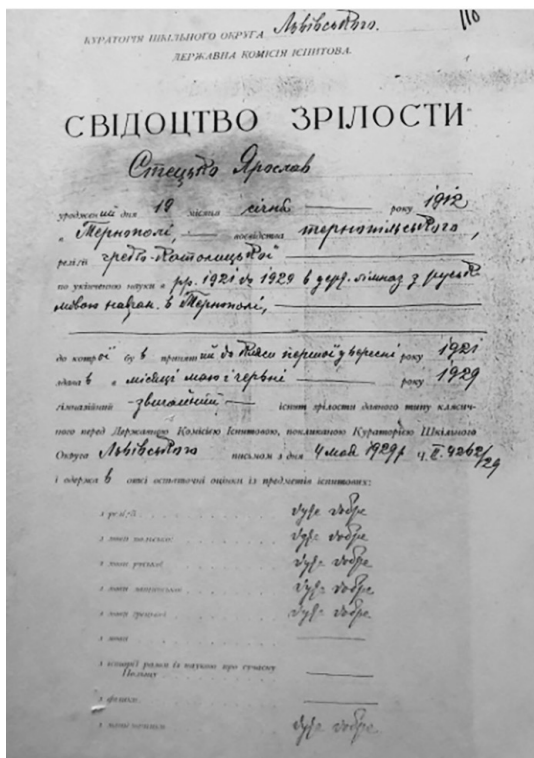 110
КУРАТОРІЯ ШКІЛЬНОГО ОКРУГА Львівського.
ДЕРЖАВНА КОМІСІЯ ІСПИТОВА.
СВІДОЦТВО ЗРІЛОСТИ
Стецько Ярослав
уроджений дня 19 місяця січня року 1912
в Тернополі, воєвідства тернопільського,
релігії греко-католицької
по укінченню науки в рр. 1921 до 1929 в держ. гімназ. з руськ.
мовою навчан. в Тернополі,
до котрої був принятий до кляси першої у вересні року 1921
здавав в місяці маю і червні року 1929
гімназійний звичайний іспит зрілости давного типу клясич-
ного перед Державною Комісією Іспитовою, покликаною Кураторією Шкільного
Округа Львівського письмом з дня 4 мая 1929 р. Ч. II. 4262/29
і одержав отсі остаточні оцінки із предметів іспитових:
з релігії дуже добре
з мови польської дуже добре
з мови руської дуже добре
з мови латинської дуже добре
з мови грецької дуже добре
з мови
з історії разом із наукою про сучасну
Польщу
з фізики
з математики дуже добре